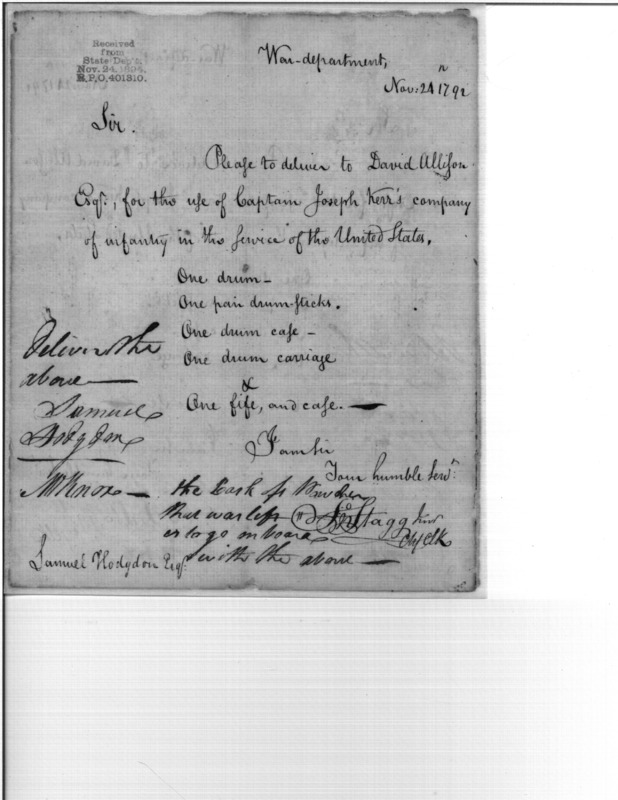 Received
from
State Dep't.
Nov. 24, 1894,
R.P.O. 401310.
War-department,
Nov: 24th 1792
Sir.
Please to deliver to David Allison
Esqr., for the use of Captain Joseph Kerr's company
of infantry in the service of the United States.
One drum —
One pair drum-sticks.
One drum case —
One drum carriage
&
One fife, and case. —
I am Sir
Your humble Servt.
Jno Stagg Junr
Chf Clk
Deliver the
above —
Samuel
Hodgdon
Mr Knox — the Cask of
that was left
or to go on board
with the above —
Samuel Hodgdon Esqr.